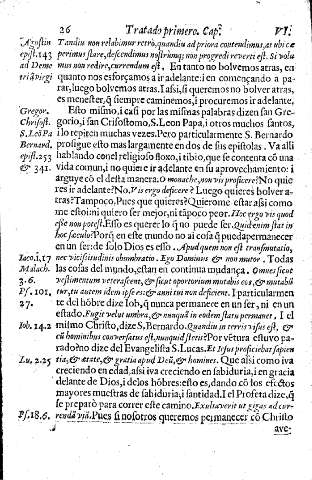 26 Tratado primero. Cap. VI.
Agustin Tandiu non relabimur retrò, quandiu ad priora contendimus, at ubi cæ
epist. 143 perimus stare, descendimus nostrúmq; non progredi reverti est. Si volu
ad Deme mus non redire, currendum est. En tanto no bolvemos atras, en
triã virgi quanto nos esforçamos a ir adelante: i en començando a pa-
rar, luego bolvemos atras. I assi, si queremos no bolver atras,
es menester, q̃ siempre caminemos, i procuremos ir adelante.
Gregor. Esto mismo, i casi por las mismas palabras dizen san Gre-
Chrisost. gorio, i san Crisostomo, S. Leon Papa, i otros muchos santos,
S. Leõ Pa i lo repiten muchas vezes. Pero particularmente S. Bernardo
Bernard. prosigue esto mas largamente en dos de sus epistolas. Va alli
epist. 253 hablando con el religioso floxo, i tibio, que se contenta cõ una
& 341. vida comun, i no quiere ir adelante en su aprovechamiento: i
arguye cõ el desta manera. O monache, non vis proficere? No quie
res ir adelante? No, Vis ergo deficere? Luego quieres bolver a-
tras? Tampoco, Pues que quieres? Quierome estar assi como
me estoi: ni quiero ser mejor, ni tãpoco peor. Hoc ergo vis quod
esse non potest. Esso es querer lo q̃ no puede ser. Quid enim stat in
hoc sæculo? Porq̃ en este mundo no ai cosa q̃ pueda permanecer
en un ser: de solo Dios es esso. Apud quem non est transmutatio,
Iaco. 1, 17 nec vicissitudinis obumbratio. Ego Dominus & non mutor. Todas
Malach. las cosas del mundo, estan en continua mudança. Omnes sicut
3. 6. vestimentum veterascent, & sicut opertorium mutabis eos, & mutabũ
Ps. 101. tur, tu autem idem ipse es: & anni tui non deficient. I particularmen
27. te del hõbre dize Iob, q̃ nunca permanece en un ser, ni en un
estado. Fugit velut umbra, & nunquã in eodem statu permanet. I el
Iob. 14. 2 mismo Christo, dize S. Bernardo. Quandiu in terris visus est, &
cũ hominibus conversatus est, nunquid stetit? Por vẽtura estuvo pa-
rado? no dize del Evangelista S. Lucas. Et Iesus proficiebat sapien
Lu, 2. 25 tia, & ætate, & gratia apud Deũ, & homines. Que assi como iva
creciendo en edad, assi iva creciendo en sabiduria, i en gracia
delante de Dios, i de los hõbres: esto es, dando cõ los efectos
mayores muestras de sabiduria, i santidad. I el Profeta dize, q̃
se preparò para correr este camino. Exultavit ut gigas ad cur-
Ps. 18. 6. rendã viã. Pues si nosotros queremos permanecer cõ Christo
ave-